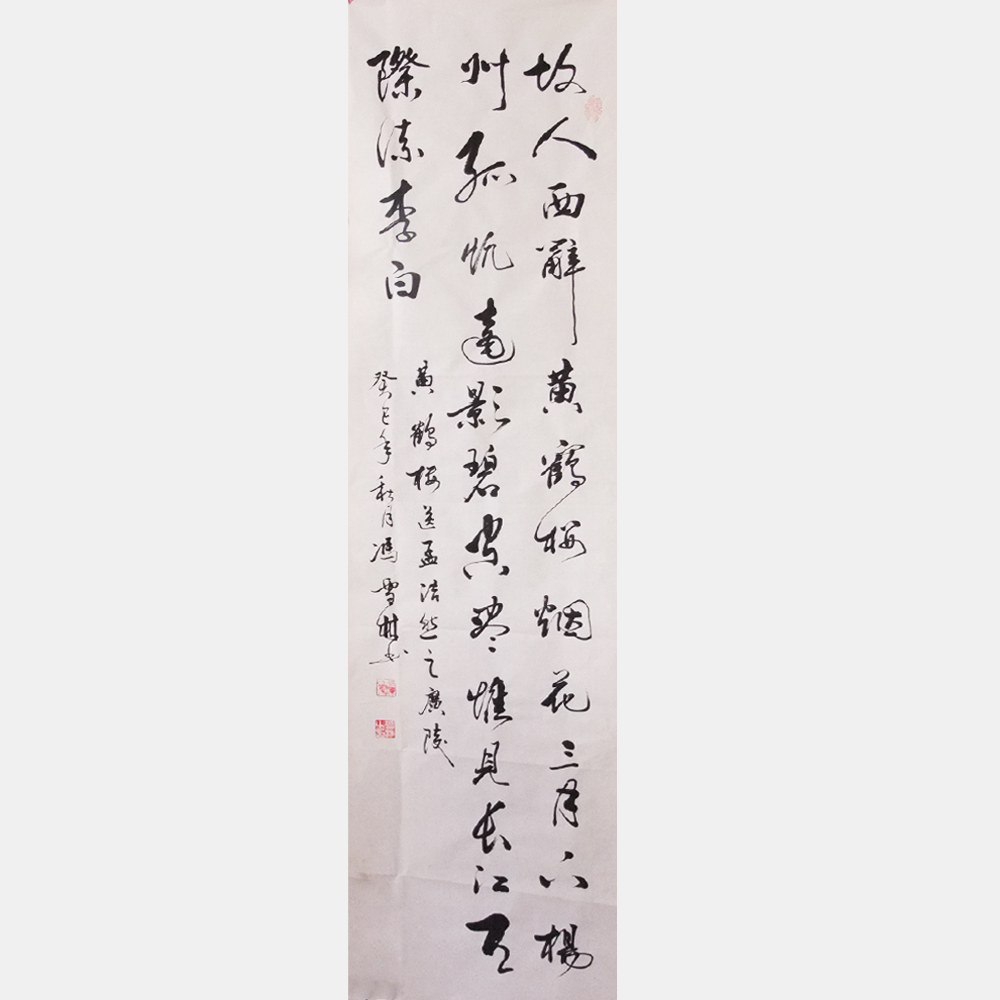 故人西辭黄鶴楼烟花三月下楊
州孤帆遠影碧空盡惟見长江天
際流李白
黄鶴楼送孟浩然之廣陵
癸巳年秋月馮雪